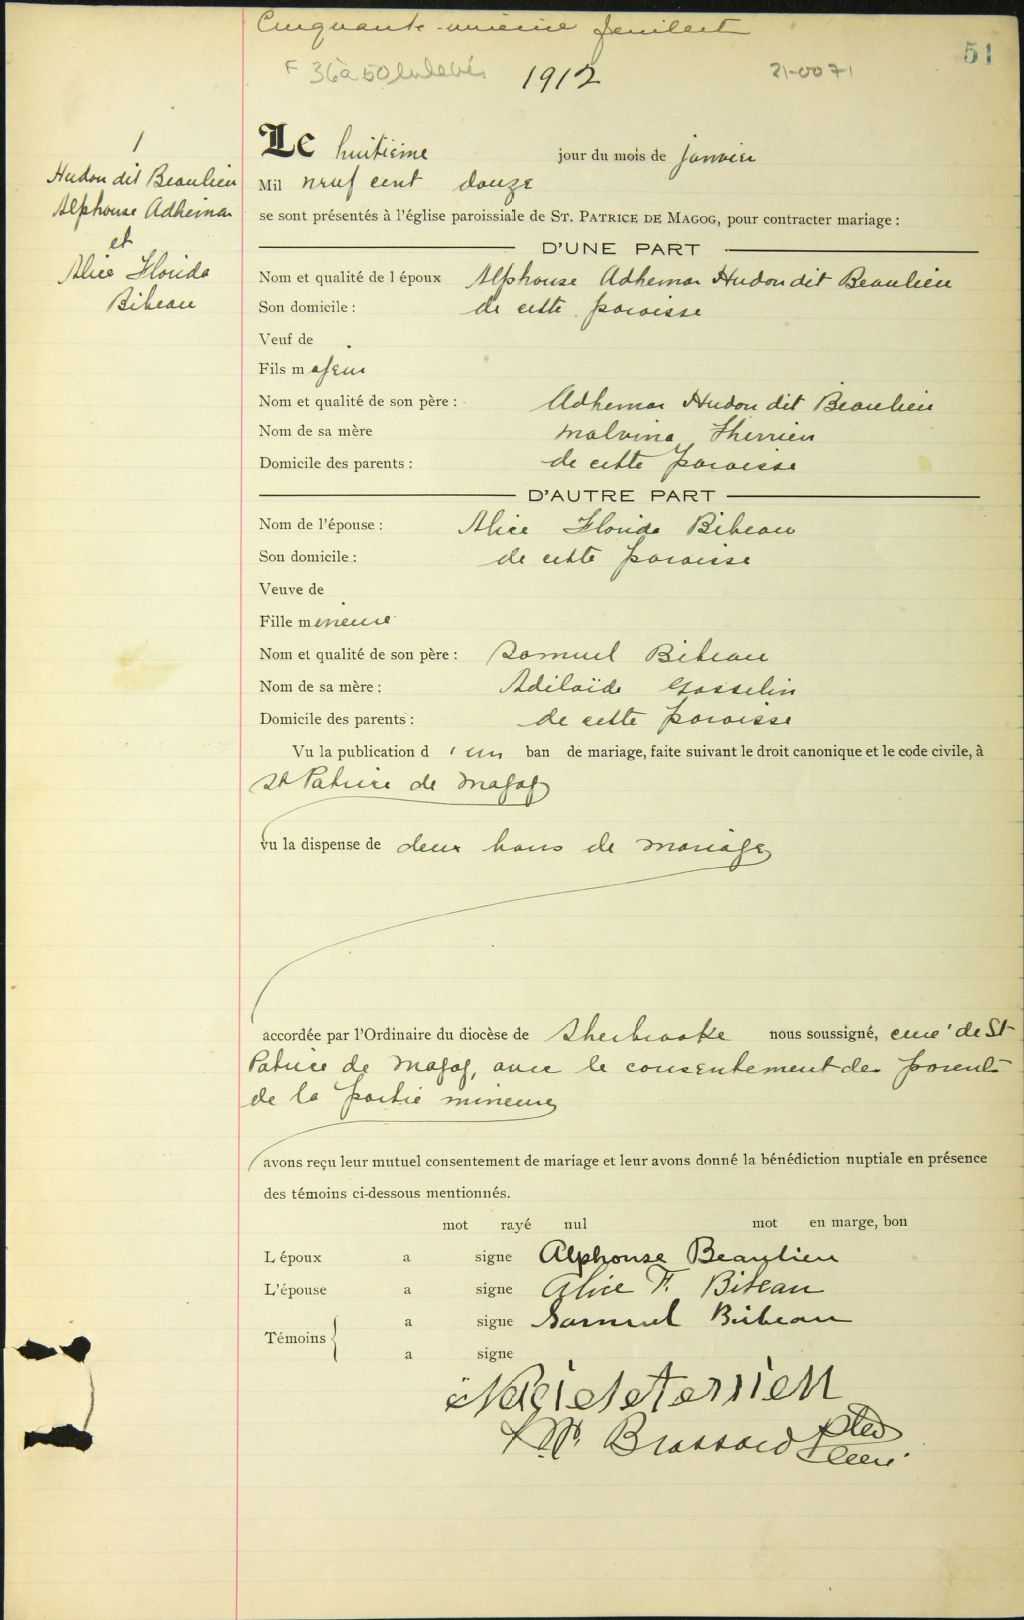 Cinquante-unième feuillet
51
F 36 à 50 enlevés
1912
21-0071
1
Hudon dit Beaulieu
Alphonse Adhemar
et
Alice Florida
Bibeau
Le huitième jour du mois de janvier
Mil neuf cent douze
se sont présentés à l'église paroissiale de ST. PATRICE DE MAGOG, pour contracter mariage :
D'UNE PART
Nom et qualité de l époux Alphonse Adhemar Hudon dit Beaulieu
Son domicile : de cette paroisse
Veuf de
Fils majeur
Nom et qualité de son père : Adhemar Hudon dit Beaulieu
Nom de sa mère Malvina Therrien
Domicile des parents : de cette paroisse
D'AUTRE PART
Nom de l'épouse : Alice Florida Bibeau
Son domicile : de cette paroisse
Veuve de
Fille mineure
Nom et qualité de son père : Samuel Bibeau
Nom de sa mère : Adilaïde Gosselin
Domicile des parents : de cette paroisse
Vu la publication d 'un ban de mariage, faite suivant le droit canonique et le code civile, à
St Patrice de Magog
vu la dispense de deux bans de mariage
accordée par l'Ordinaire du diocèse de Sherbrooke nous soussigné, curé de St
Patrice de Magog, avec le consentement des parents
de la partie mineure
avons reçu leur mutuel consentement de mariage et leur avons donné la bénédiction nuptiale en présence
des témoins ci-dessous mentionnés.
mot rayé nul mot en marge, bon
L époux a signé Alphonse Beaulieu
L'épouse a signé Alice F. Bibeau
Témoins { a signé Samuel Bibeau
a signé
Brassard Ptre
Curé